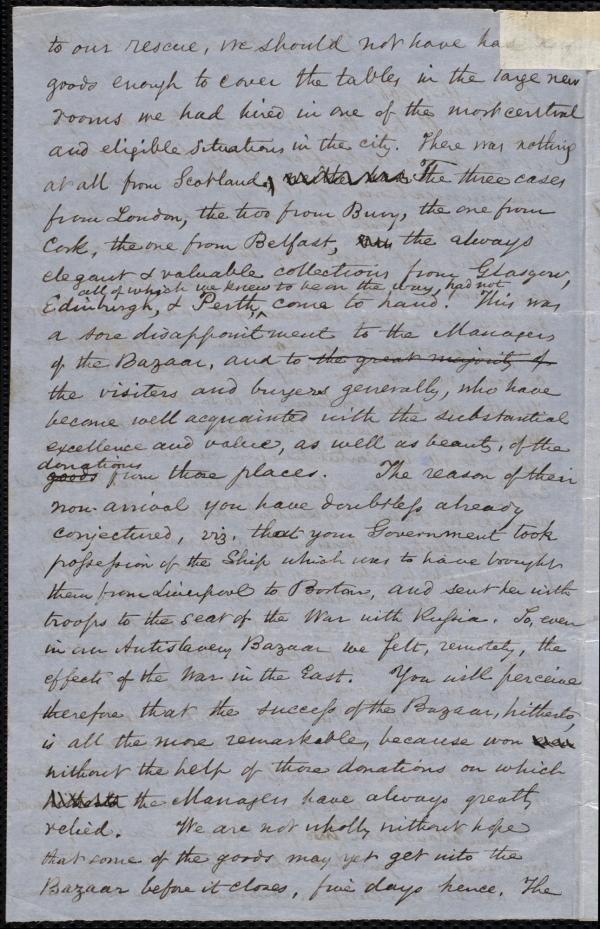 to our rescue, we should not have had
goods enough to cover the tables in the large new
rooms we had hired in one of the most central
and eligible situations in the city. There was nothing
at all from Scotland, The three cases
from London, the two from Bury, the one from
Cork, the one from Belfast, the always
elegant & valuable collections from Glasgow,
all of which we knew to be on the way, had not
Edinburgh, & Perth, come to hand! This was
a sore disappointment to the Managers
of the Bazaar, and to the great majority of
the visiters and buyers generally, who have
become well acquainted with the substantial
excellence and value, as well as beauty, of the
donations
goods from those places. The reason of their
non-arrival you have doubtless already
conjectured, viz. that your Government took
possession of the Ship which was to have brought
them from Liverpool to Boston, and sent her with
troops to the seat of the War with Russia. So, even
in an Antislavery Bazaar we felt, remotely, the
effects of the War in the East. You will perceive
therefore that the success of the Bazaar, hitherto,
is all the more remarkable, because won
without the help of those donations on which
the Managers have always greatly
relied. We are not wholly without hope
that some of the goods may yet get into the
Bazaar before it closes, five days hence. The